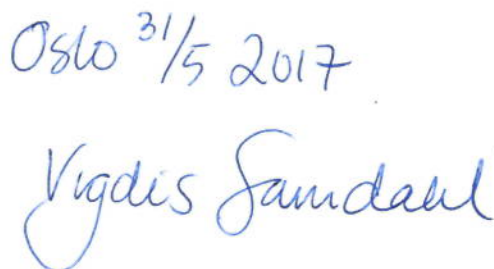 Oslo 31/5 2017
Vigdis Samdahl